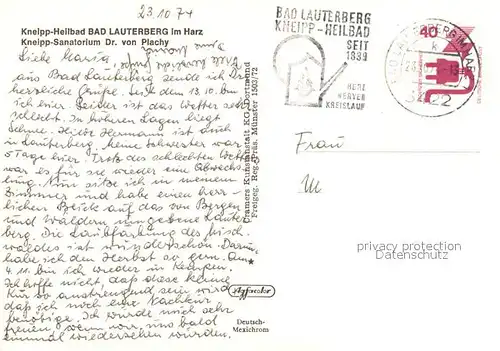 23.10.74
Kneipp-Heilbad BAD LAUTERBERG im Harz
Kneipp-Sanatorium Dr. von Plachy
Liebe Maria,
aus Bad Lauterberg sende ich Dir
herzliche Grüße. Seit dem 13.10. bin
ich hier. Leider ist das Wetter sehr
schlecht. In höheren Lagen liegt
Schnee. Hermann ist auch
in Lauterberg. Meine Schwester war
5 Tage hier. Trotz des schlechten Wetters
war es für sie wieder eine Abwechs-
lung. Nun sitze ich in meinem
Zimmer und habe einen herr-
lichen Blick auf das von Bergen
und Wäldern umgebene Lauter-
berg. Die Laubfärbung des Misch-
waldes ist wunderschön. Darum
habe ich den Herbst so gern. Am
4.11. bin ich wieder in Kempen.
Ich hoffe nicht, daß diese kleine
Kur so anstrengend sein wird,
daß ich noch eine Nachkur
benötige. Ich würde mich sehr
freuen, wenn wir uns bald
einmal wiedersehen würden.
Cramers Kunstanstalt KG, Dortmund
Freigeg. Reg.-Präs. Münster 1503/72
Agfacolor
Deutsch-
Mexichrom
BAD LAUTERBERG
KNEIPP-HEILBAD
SEIT
1839
HERZ
NERVEN
KREISLAUF
BAD LAUTERBERG IM HARZ
k
3422
40
Frau
M
www.ansichtskartenversand.com
Copyright